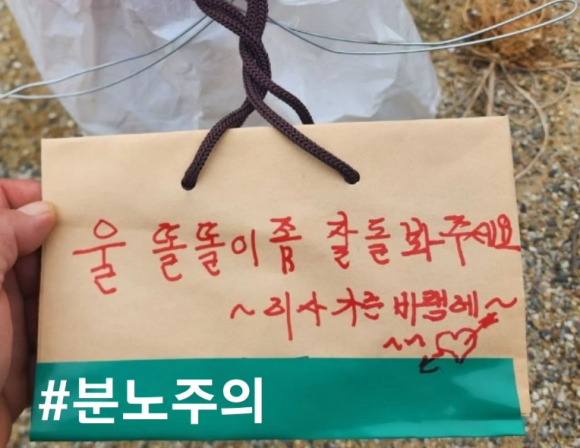 울 똘똘이 좀 잘 돌봐주세요
~이사가는 바램에~
#분노주의